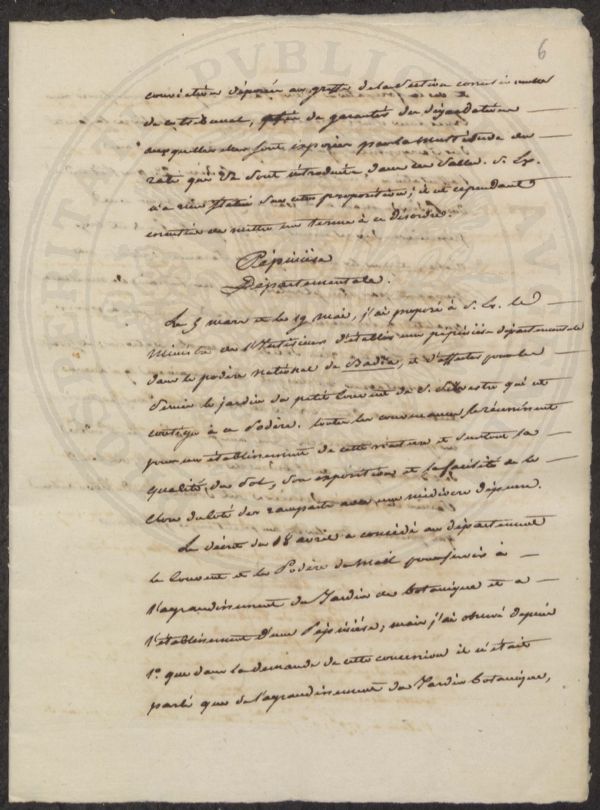 6
conviction déposées au greffe de la section correctionnelle
de ce tribunal, afin de garantir des dégradations
auxquelles elles sont exposées par la multitude des
rats qui se sont introduits dans ces salles. S. Ex.
n'a rien statué sur cette proposition; il est cependant
de mettre un terme à ce désordre.
Pépinière
Départementale.
Le 5 mars et le 19 mai, j'ai proposé à S. Ex. le
Ministre de l'Intérieur d'établir une pépinière départementale
dans le podère national de Badia, et d'affecter pour le
Service le jardin du petit couvent de S. Silvestre qui est
contigu à ce Podère. toutes les convenances se réunissent
pour un établissement de cette nature et surtout la
qualité du Sol, Son exposition et la facilité de le
clore du côté des ramparts avec une médiocre dépense.
Le décret du 18 avril a concédé au département
le Couvent et le Podère de pour servir à
l'agrandissement du Jardin de botanique et a
l'établissement d'une Pépinière; mais j'ai observé depuis
1.º que dans la demande de cette concession il n'était
parlé que de l'agrandissement du Jardin botanique,